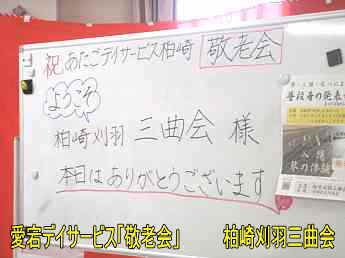 祝 あたごデイサービス柏崎 敬老会
ようこそ
柏崎刈羽 三曲会 様
本日はありがとうございます
普段着の発表
愛宕デイサービス「敬老会」 柏崎刈羽三曲会